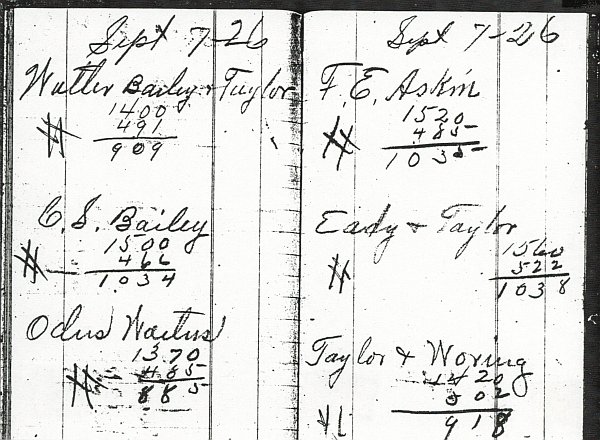 Sept 7-26
Walter Bailey & Taylor
1400
# 491
909
C. S. Bailey
1500
# 466
1034
Odus
1370
# 485
885
Sept 7-26
F. E. Askin
1520
# 485
1035
Eady & Taylor
1560
# 522
1038
Taylor & Woring
1420
# 502
918